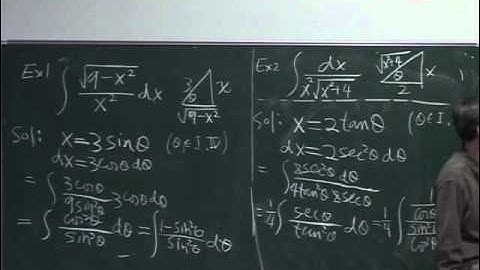 Ex1 ∫ √(9-x²)/x² dx 3 θ x √(9-x²)
Sol: x=3sinθ (θ∈I,IV)
dx=3cosθdθ
=∫ 3cosθ/9sin²θ 3cosθdθ
=∫ cos²θ/sin²θ dθ =∫ 1-sin²θ/sin²θ dθ
Ex2 ∫ dx/x²√(x²+4) √(x²+4) θ x 2
Sol: x=2tanθ (θ∈I,
dx=2sec²θdθ
=∫ 2sec²θdθ/4tan²θ·2secθ
=1/4 ∫ secθ/tan²θ dθ =1/4 ∫ 1/cosθ / sin²θ/cos²θ